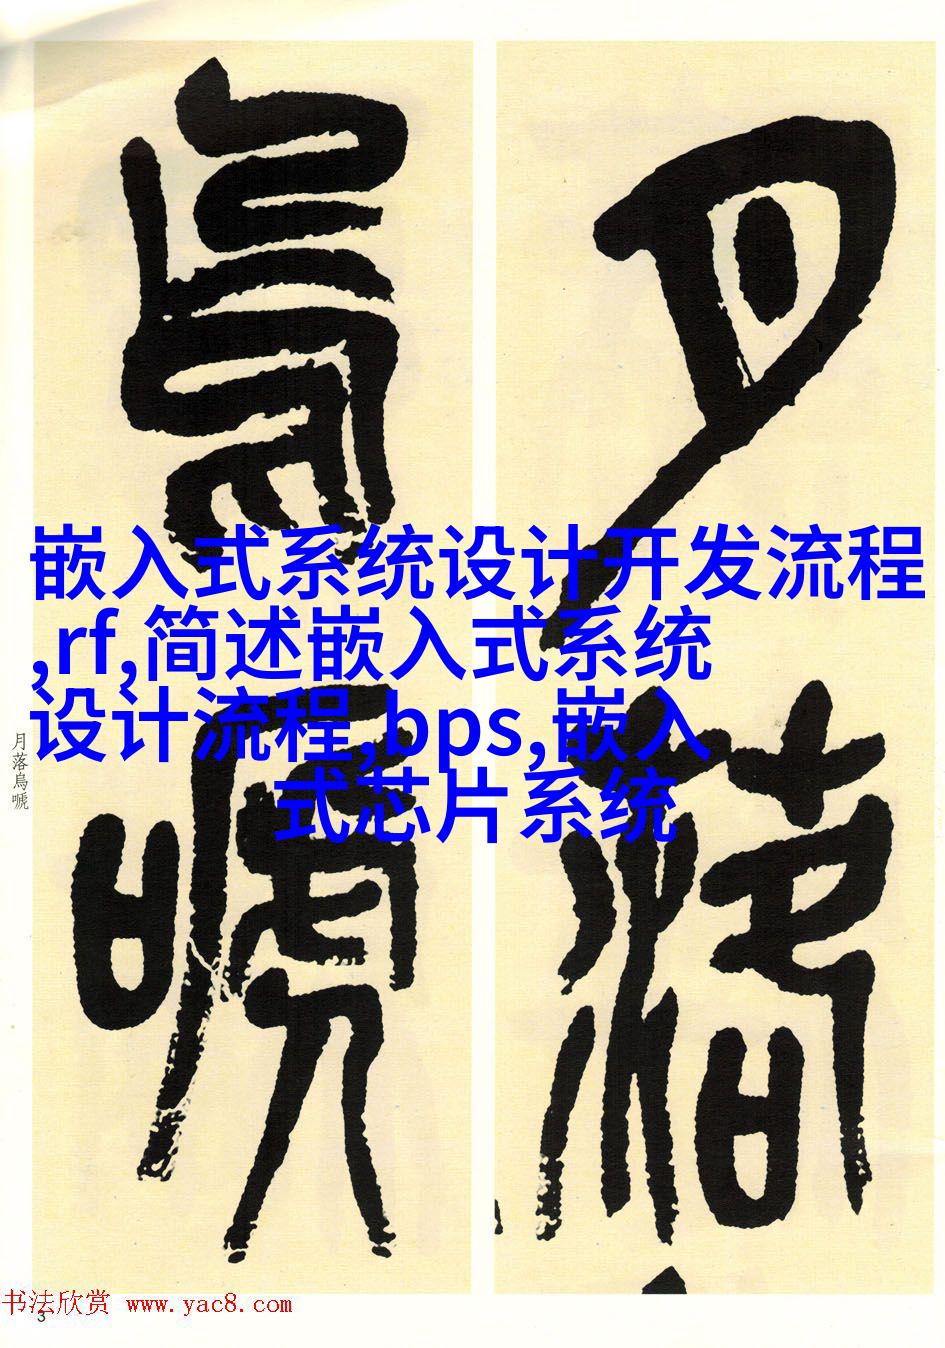 月落
烏嗁
嵌入式系统设计开发流程
,rf,简述嵌入式系统
设计流程,bps,嵌入
式芯片系统
月落烏嗁
书法欣赏 www.yac8.com
3